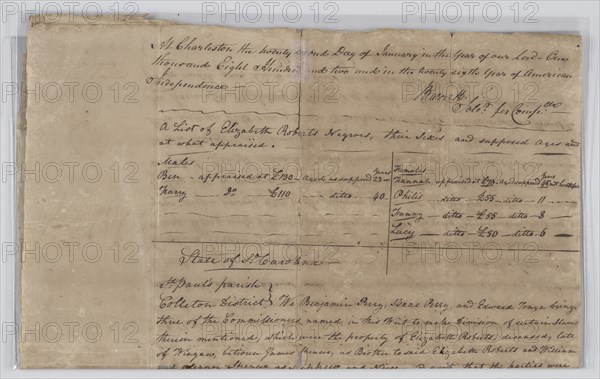 At Charleston the twenty second Day of January in the Year of our Lord One
thousand Eight Hundred and two and in the twenty sixth Year of American
Independence
A List of Elizabeth Roberts Negroes, their Sexes and supposed Ages and
at what appraised.
Males
Years
Ben - appraised at £130 - and supposed 23
Harry Do £110 - ditto - 40
Females
Years
Hannah appraised at and supposed
Philis - ditto - £55 - ditto - 11
Fanny - ditto - £55 - ditto - 8
Lucy - ditto - £50 - ditto - 6
State of So. Carolina
St. Pauls parish
Colleton District } We Benjamin Perry, Isaac Perry, and Edward Tonge being
three of the Commissioners named in this Writ to make Division of certain Slaves
therein mentioned, which were the property of Elizabeth Roberts, deceased, late
of Winyaw, between James Spencer, as Brother to said Elizabeth Roberts and William
that the parties were
PHOTO12